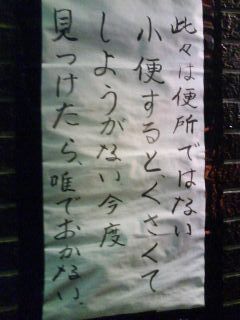 此々は便所ではない
小便するとくさくて
しようがない今度
見つけたら、唯でおかない、